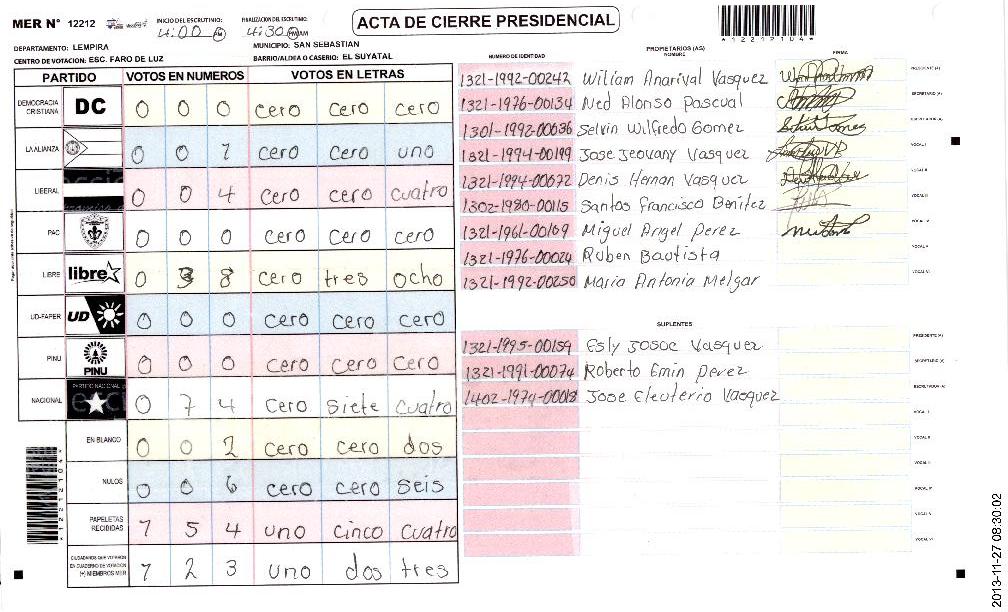 MER N° 12212
INICIO DEL ESCRUTINIO: 4:00 AM
FINALIZACION DEL ESCRUTINIO: 4:30 PM/AM
ACTA DE CIERRE PRESIDENCIAL
*12212104*
DEPARTAMENTO: LEMPIRA
MUNICIPIO: SAN SEBASTIAN
CENTRO DE VOTACION: ESC. FARO DE LUZ
BARRIO/ALDEA O CASERIO: EL SUYATAL
PARTIDO VOTOS EN NUMEROS VOTOS EN LETRAS
DEMOCRACIA CRISTIANA DC 0 0 0 cero cero cero
LA ALIANZA 0 0 1 cero cero uno
LIBERAL 0 0 4 cero cero cuatro
PAC 0 0 0 cero cero cero
LIBRE libre 0 3 8 cero tres ocho
UD-FAPER UD 0 0 0 cero cero cero
PINU PINU 0 0 0 cero cero cero
NACIONAL PARTIDO NACIONAL 0 7 4 cero siete cuatro
EN BLANCO 0 0 2 cero cero dos
NULOS 0 0 6 cero cero seis
PAPELETAS RECIBIDAS 1 5 4 uno cinco cuatro
CIUDADANOS QUE VOTARON EN CUADERNO DE VOTACION (+) MIEMBROS MER 1 2 3 uno dos tres
PROPIETARIOS (AS)
NUMERO DE IDENTIDAD NOMBRE FIRMA
1321-1992-00242 Wiliam Anarival Vasquez PRESIDENTE (A)
1321-1976-00134 Ned Alonso Pascual SECRETARIO (A)
1301-1992-00636 Selvin Wilfredo Gomez ESCRUTADOR (A)
1321-1994-00199 Jose Jeovany Vasquez VOCAL I
1321-1994-00672 Denis Hernan Vasquez VOCAL II
1302-1980-00115 Santos Francisco Benitez VOCAL III
1321-1961-00109 Miguel Angel Perez VOCAL IV
1321-1976-00024 Ruben Bautista VOCAL V
1321-1992-00250 Maria Antonia Melgar VOCAL VI
SUPLENTES
1321-1995-00159 Esly Josue Vasquez PRESIDENTE (A)
1321-1991-00074 Roberto Emin perez SECRETARIO (A)
1402-1974-00018 Jose Eleuterio Vasquez ESCRUTADOR (A)
VOCAL I
VOCAL II
VOCAL III
VOCAL IV
VOCAL V
VOCAL VI
2013-11-27 08:30:02